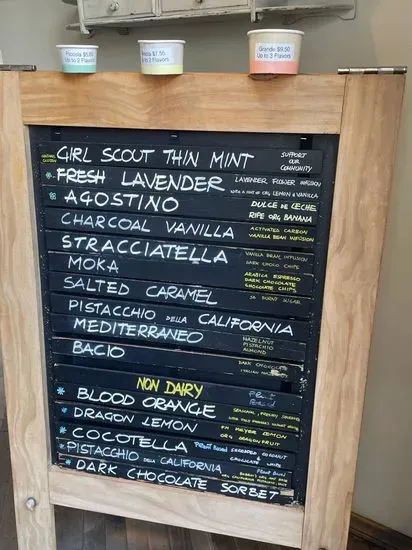 Piccola $5.50
Up to 2 Flavors
Media $7.50
Up to 2 Flavors
Grande $9.50
Up to 3 Flavors
GIRL SCOUT THIN MINT SUPPORT OUR COMMUNITY
FRESH LAVENDER LAVENDER FLOWER INFUSION
WITH A HINT OF ORG LEMON & VANILLA
AGOSTINO DULCE DE LECHE
RIPE ORG BANANA
CHARCOAL VANILLA ACTIVATED CARBON
VANILLA BEAN INFUSION
STRACCIATELLA VANILLA BEAN INFUSION
DARK CHOCO CHIPS
MOKA ARABICA ESPRESSO
DARK CHOCOLATE
CHOCOLATE CHIPS
SALTED CARAMEL BURNT SUGAR
PISTACCHIO DELLA CALIFORNIA
MEDITERRANEO HAZELNUT
PISTACHIO
ALMOND
BACIO DARK CHOCOLATE
ITALIAN
NON DAIRY
BLOOD ORANGE SEASONAL, FRESHLY SQUEEZED
DRAGON LEMON FM MEYER LEMON
ORG DRAGONFRUIT
COCOTELLA Plant Based SHREDDED COCONUT
& CHOCOLATE
PISTACCHIO DELLA CALIFORNIA
DARK CHOCOLATE SORBET